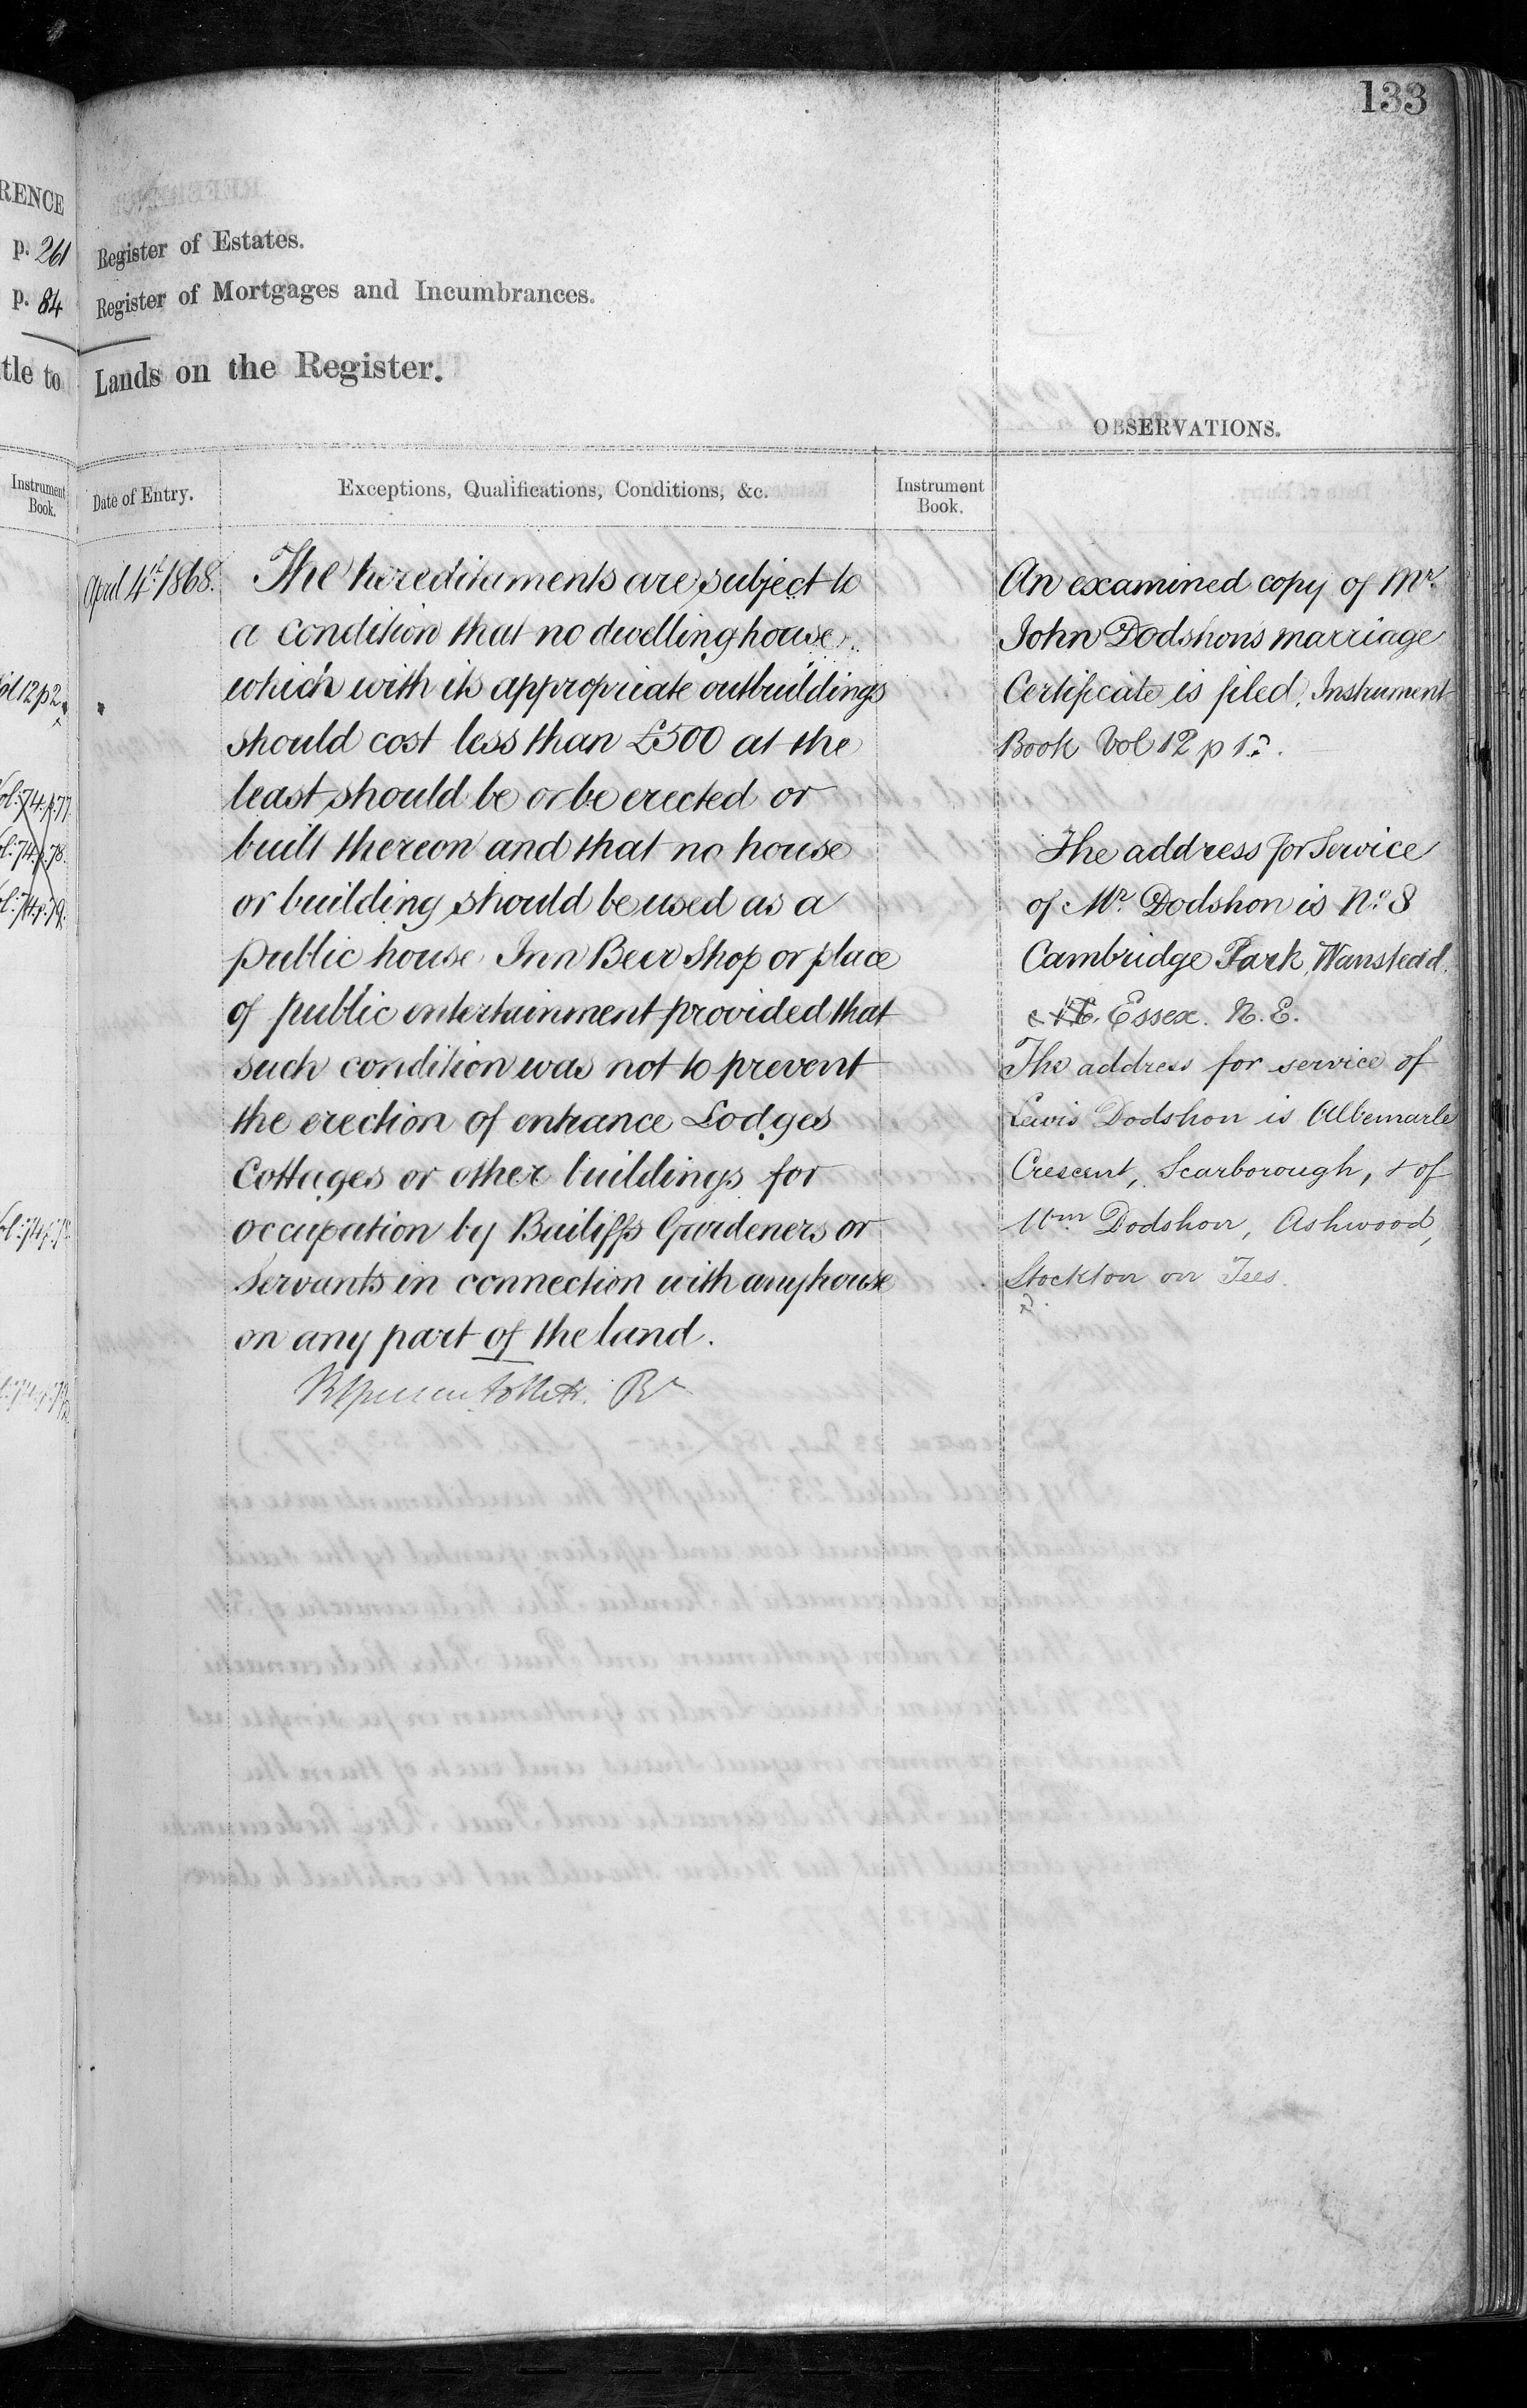 133
RENCE
p. 261
p. 84
tle to
Register of Estates.
Register of Mortgages and Incumbrances.
Lands on the Register.
OBSERVATIONS.
Instrument
Book.
Date of Entry.
Exceptions, Qualifications, Conditions, &c.
Instrument
Book.
April 4th 1868.
The hereditaments are subject to
a condition that no dwellinghouse
which with its appropriate outbuildings
should cost less than £500 at the
least should be or be erected or
built thereon and that no house
or building should be used as a
public house Inn Beer Shop or place
of public entertainment provided that
such condition was not to prevent
the erection of entrance Lodges
Cottages or other buildings for
occupation by Bailiffs Gardeners or
Servants in connection with any house
on any part of the land.
An examined copy of Mr.
John Dodshon's marriage
Certificate is filed, Instrument
Book Vol 12 p 1.
The address for Service
of Mr. Dodshon is No. 8
Cambridge Park, Wanstead.
Essex. N.E.
The address for service of
Lewis Dodshon is Albemarle
Crescent, Scarborough, & of
Wm Dodshon, Ashwood,
Stockton on Tees.
Vol 12 p 2
Vol: 74. p. 77.
Vol: 74. p. 78.
Vol: 74. p. 79.